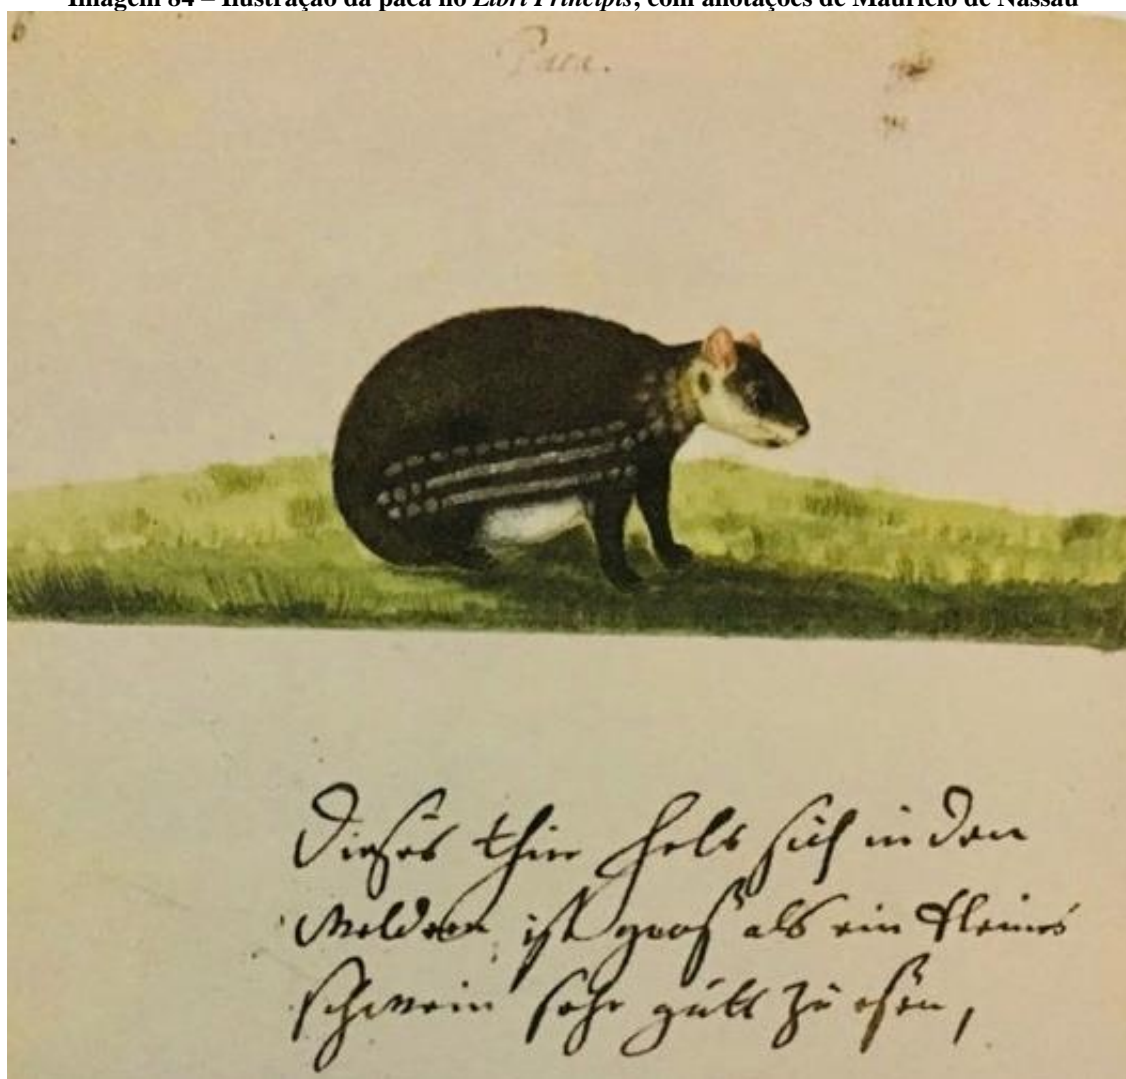 Imagem 84 – Ilustração da paca no Libri Principis, com anotações de Maurício de Nassau
Paca.
Dieses thier helt sich in den
Welden ist gros als ein kleines
schwein sehr gutt zu essen,